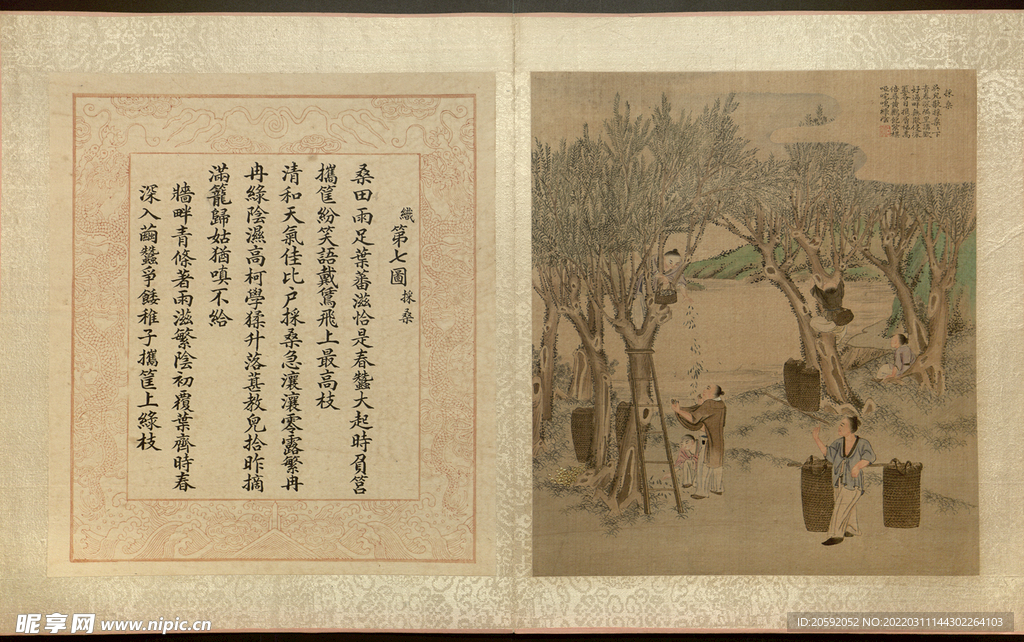 織第七圖採桑
桑田雨足葉蕃滋恰是春蠶大起時負筥
攜筐紛笑語戴鵀飛上最高枝
清和天氣佳比户採桑急瀼瀼零露繁冉
冉綠陰濕高柯學猱升落葚教兒拾昨摘
滿籠歸姑猶嗔不給
牆畔青條著雨滋繁陰初覆葉齊時春
深入繭蠶爭餧稚子攜筐上綠枝
採桑
昵享网 www.nipic.cn
ID:20592052 NO:20220311144302264103